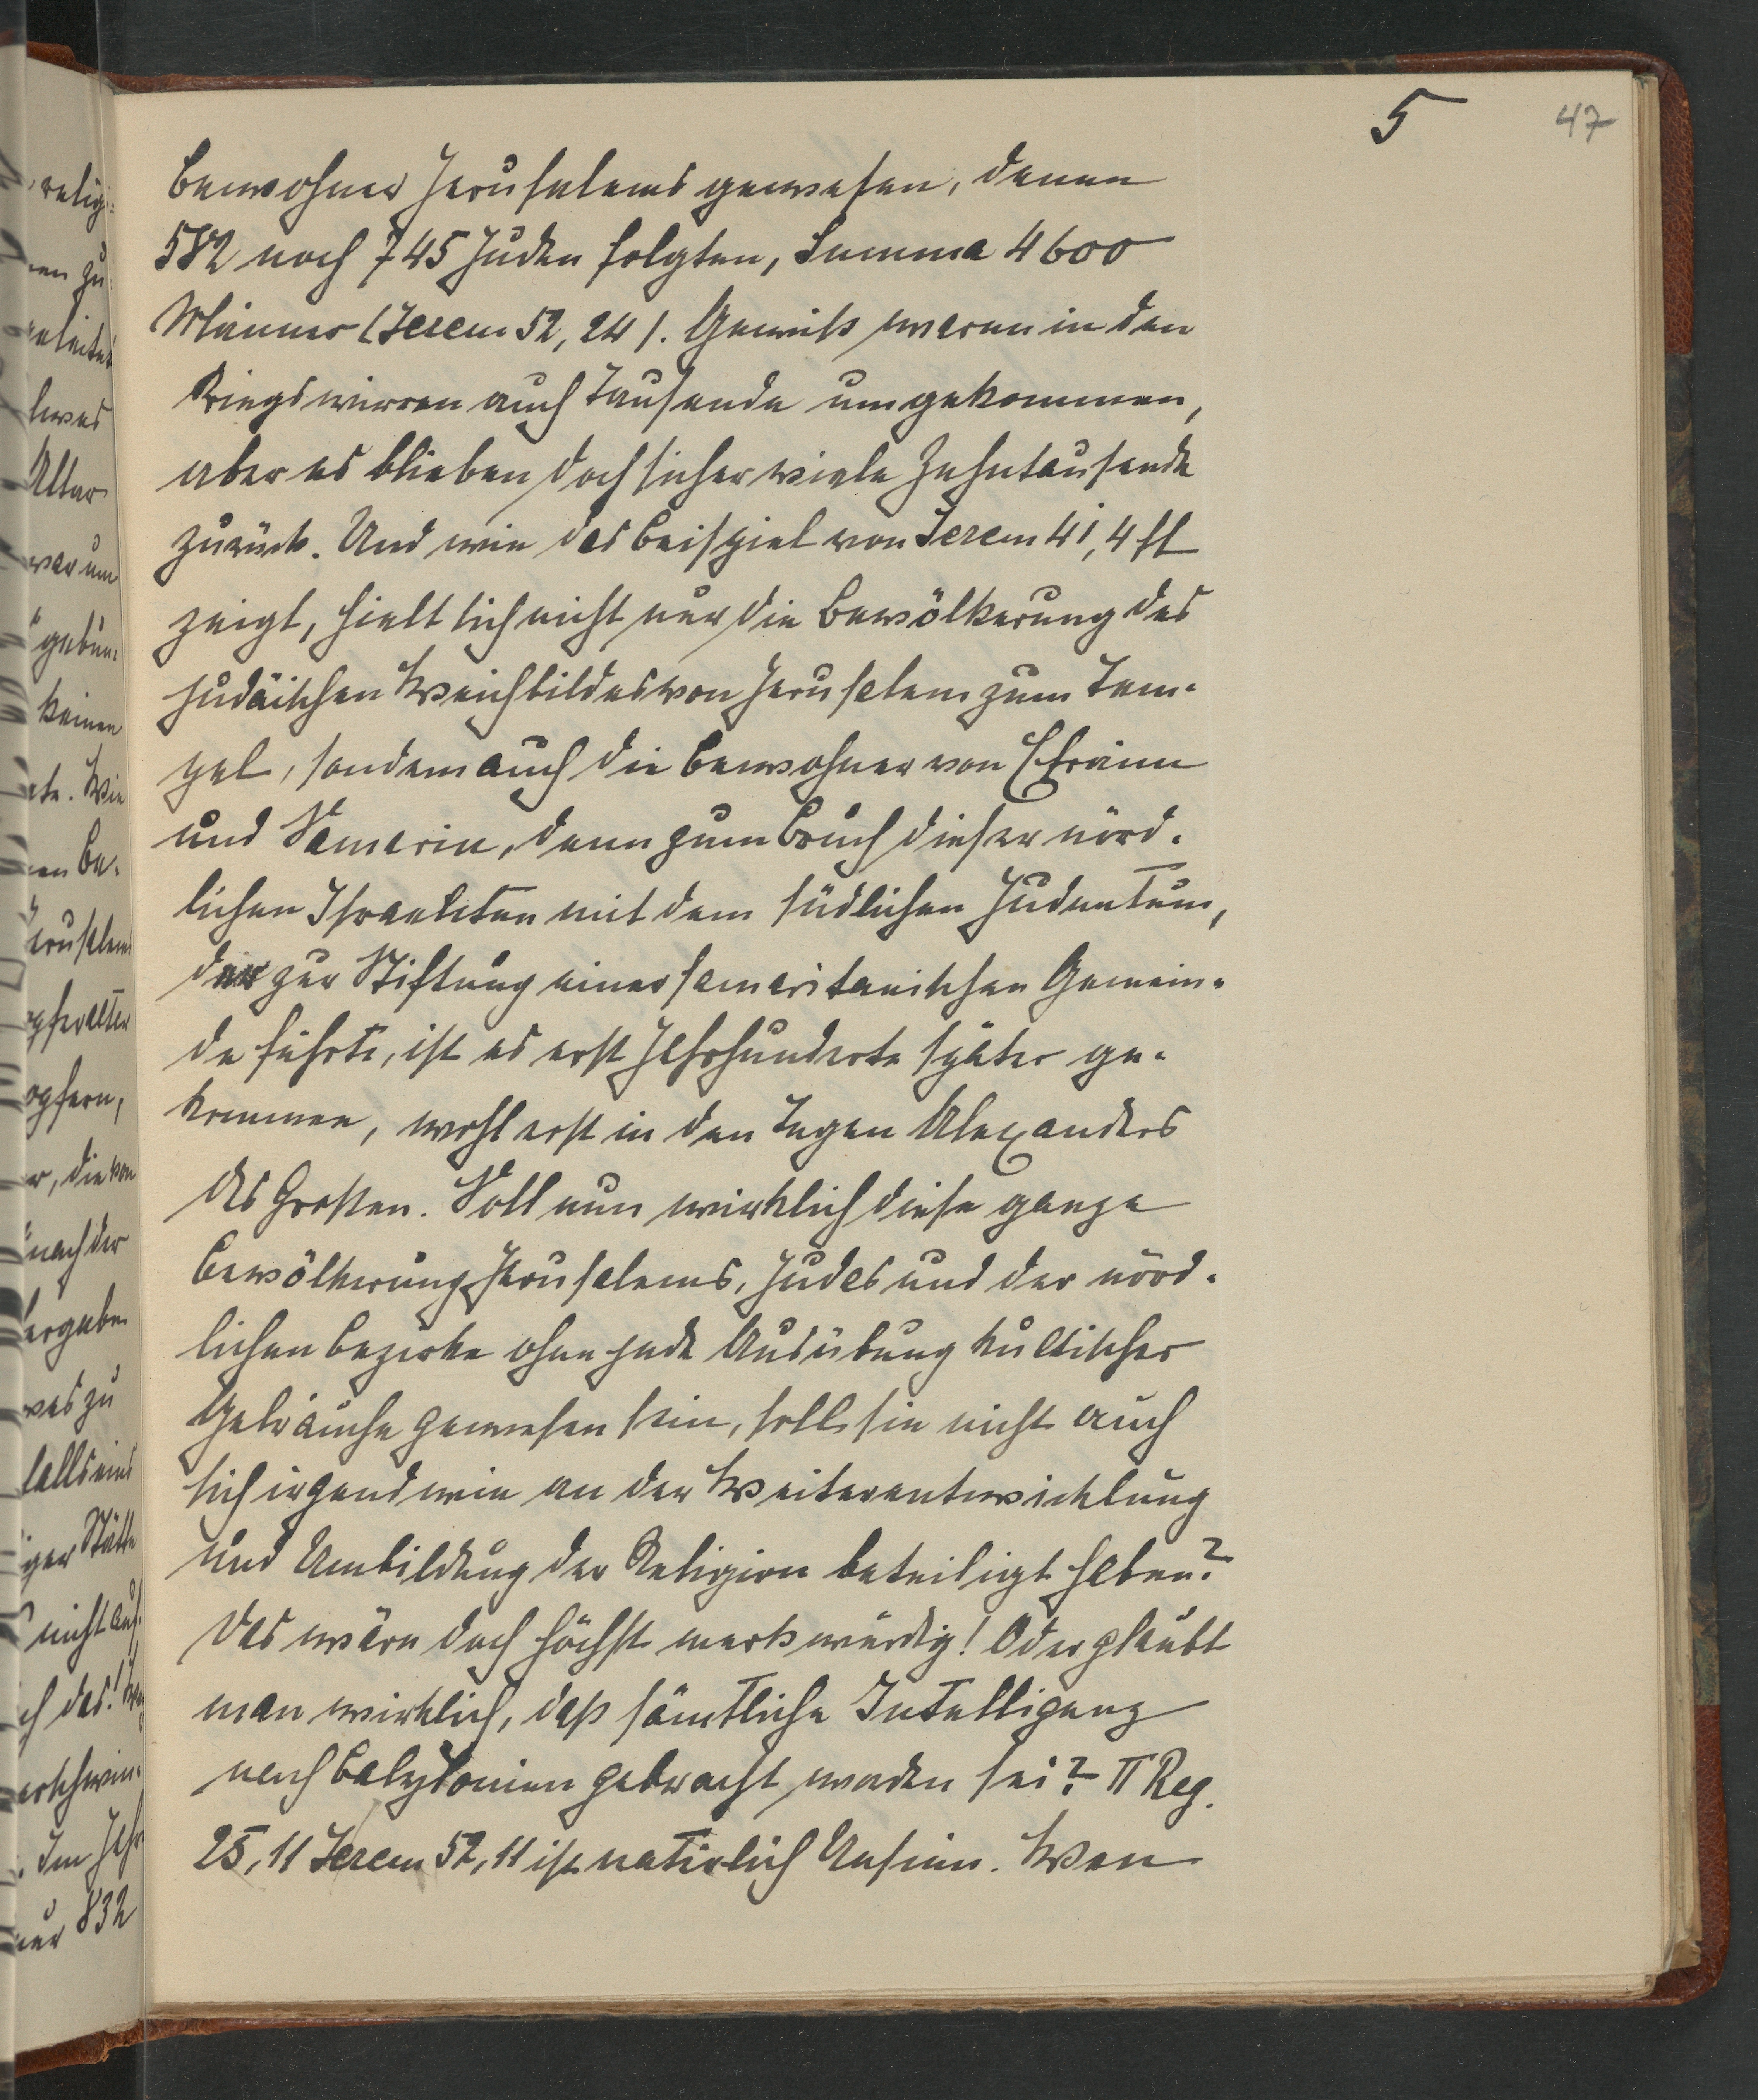 5
47
Bewohner Jerusalems gewesen, denen
582 noch 745 Juden folgten, Summa 4600
Männer (Jerem 52, 24). Gewiß waren in den
Kriegswirren auch Tausende umgekommen,
aber es blieben doch sicher viele Zehntausende
zurück. Und wie das Beispiel von Jerem 41, 4 ff
zeigt, hielt sich nicht nur die Bevölkerung des
judäischen Weichbildes von Jerusalem zum Tem-
pel, sondern auch die Bewohner von Efraim
und Samarien, denn zum Bruch dieser nörd-
lichen Israeliten mit dem südlichen Judentum,
der zur Stiftung einer samaritanischen Gemein-
de führte, ist es erst Jahrhunderte später ge-
kommen, wohl erst in den Tagen Alexanders
des Großen. Soll nun wirklich diese ganze
Bevölkerung Jerusalems, Judas und der nörd-
lichen Bezirke ohne jede Ausübung kultischer
Gebräuche gewesen sein, soll sie nicht auch
sich irgendwie an der Weiterentwicklung
und Umbildung der Religion beteiligt haben?
Das wäre doch höchst merkwürdig! Oder glaubt
man wirklich, daß sämtliche Intelligenz
nach Babylonien gebracht worden sei? II Reg.
25, 11 Jerem 52, 11 ist natürlich Unsinn. Wen